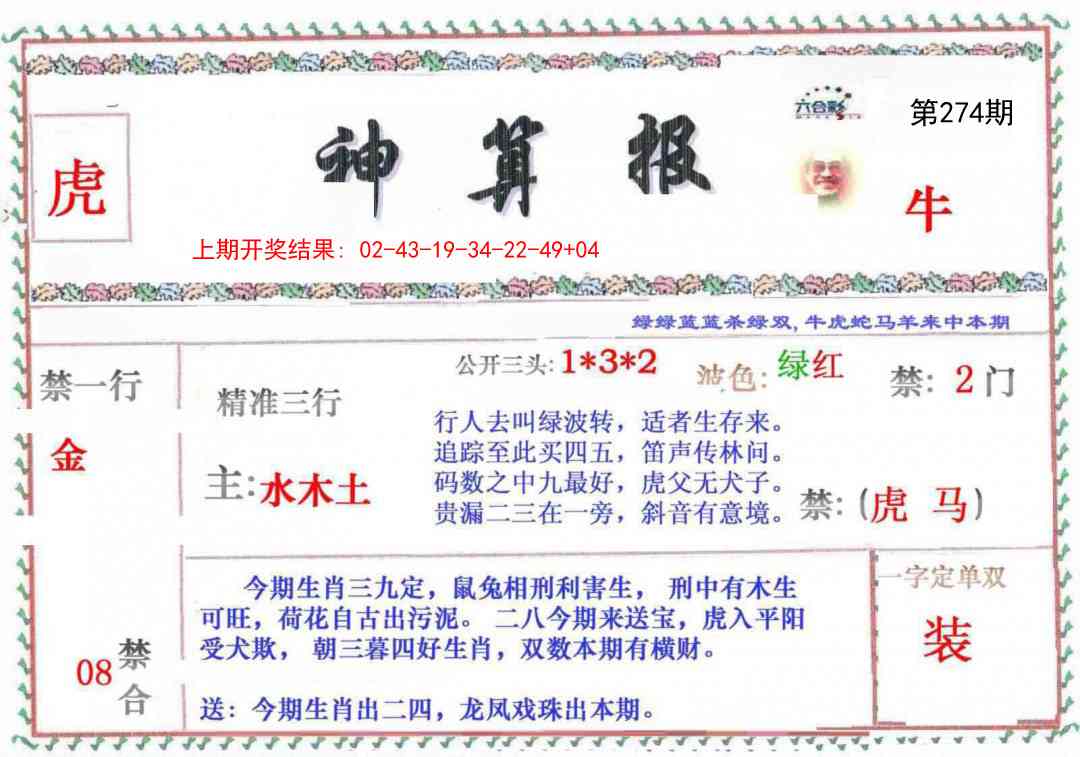 六合彩
第274期
虎
神算报
牛
上期开奖结果：02-43-19-34-22-49+04
绿绿蓝蓝杀绿双,牛虎蛇马羊来中本期
禁一行
金
精准三行
主:水木土
公开三头:1*3*2
波色:绿红
禁:2门
行人去叫绿波转，适者生存来。
追踪至此买四五，笛声传林问。
码数之中九最好，虎父无犬子。
贵漏二三在一旁，斜音有意境。
禁:(虎 马)
08
禁
合
今期生肖三九定，鼠兔相刑利害生， 刑中有木生
可旺，荷花自古出污泥。 二八今期来送宝，虎入平阳
受犬欺， 朝三暮四好生肖，双数本期有横财。
送：今期生肖出二四，龙凤戏珠出本期。
一字定单双
装